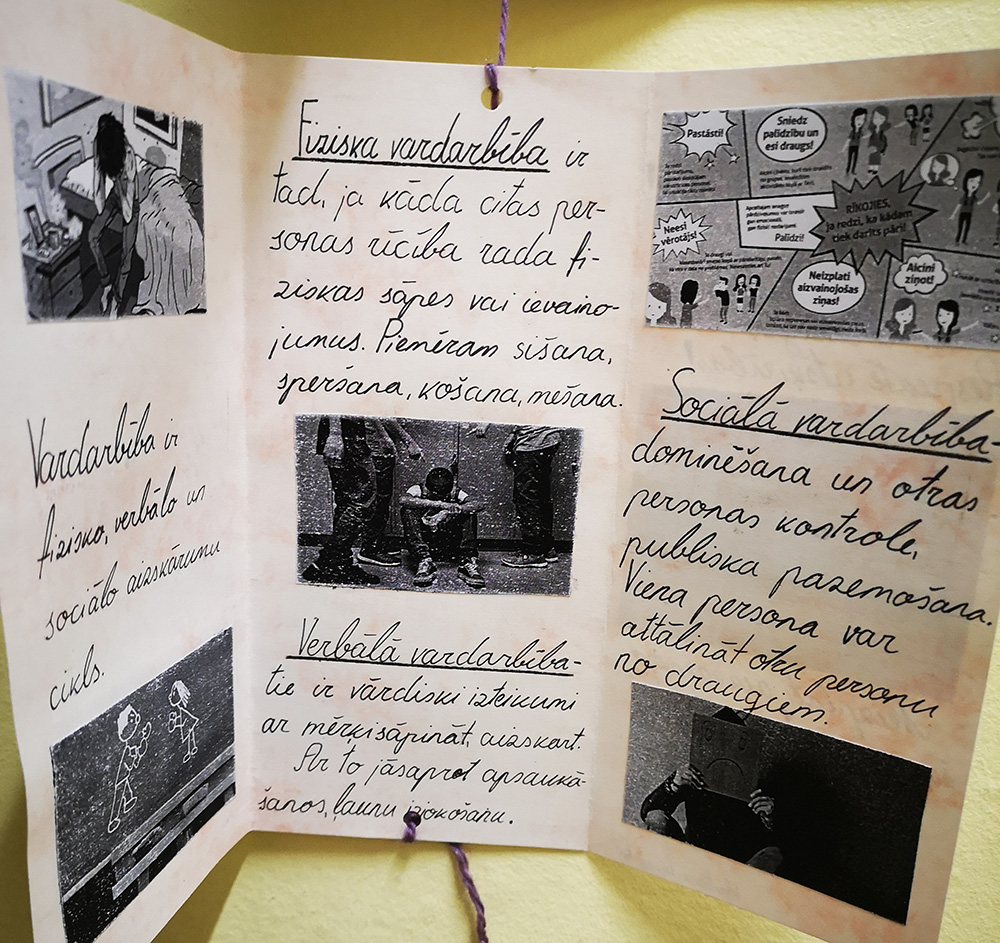 Vardarbība ir
fizisko, verbālo un
sociālo aizskārumu
cikls.
Fiziska vardarbība ir
tad, ja kāda citas per-
sonas rīcība rada fi-
ziskas sāpes vai ievaino-
jumus. Piemēram sišana,
speršana, košana, mešana.
Verbālā vardarbība-
tie ir vārdiski izteikumi
ar mērķi sāpināt, aizskart.
Ar to jāsaprot apsaukā-
šanos, ļaunu izjokošanu.
Pastāsti!
Sniedz
palīdzību un
esi draugs!
RĪKOJIES,
ja redzi, ka kādam
tiek darīts pāri!
Palīdzi!
Neesi
vērotājs!
Neizplati
aizvainojošas
ziņas!
Aicini
ziņot!
Sociālā vardarbība-
dominēšana un otras
personas kontrole,
publiska pazemošana.
Viena persona var
attālināt otru personu
no draugiem.